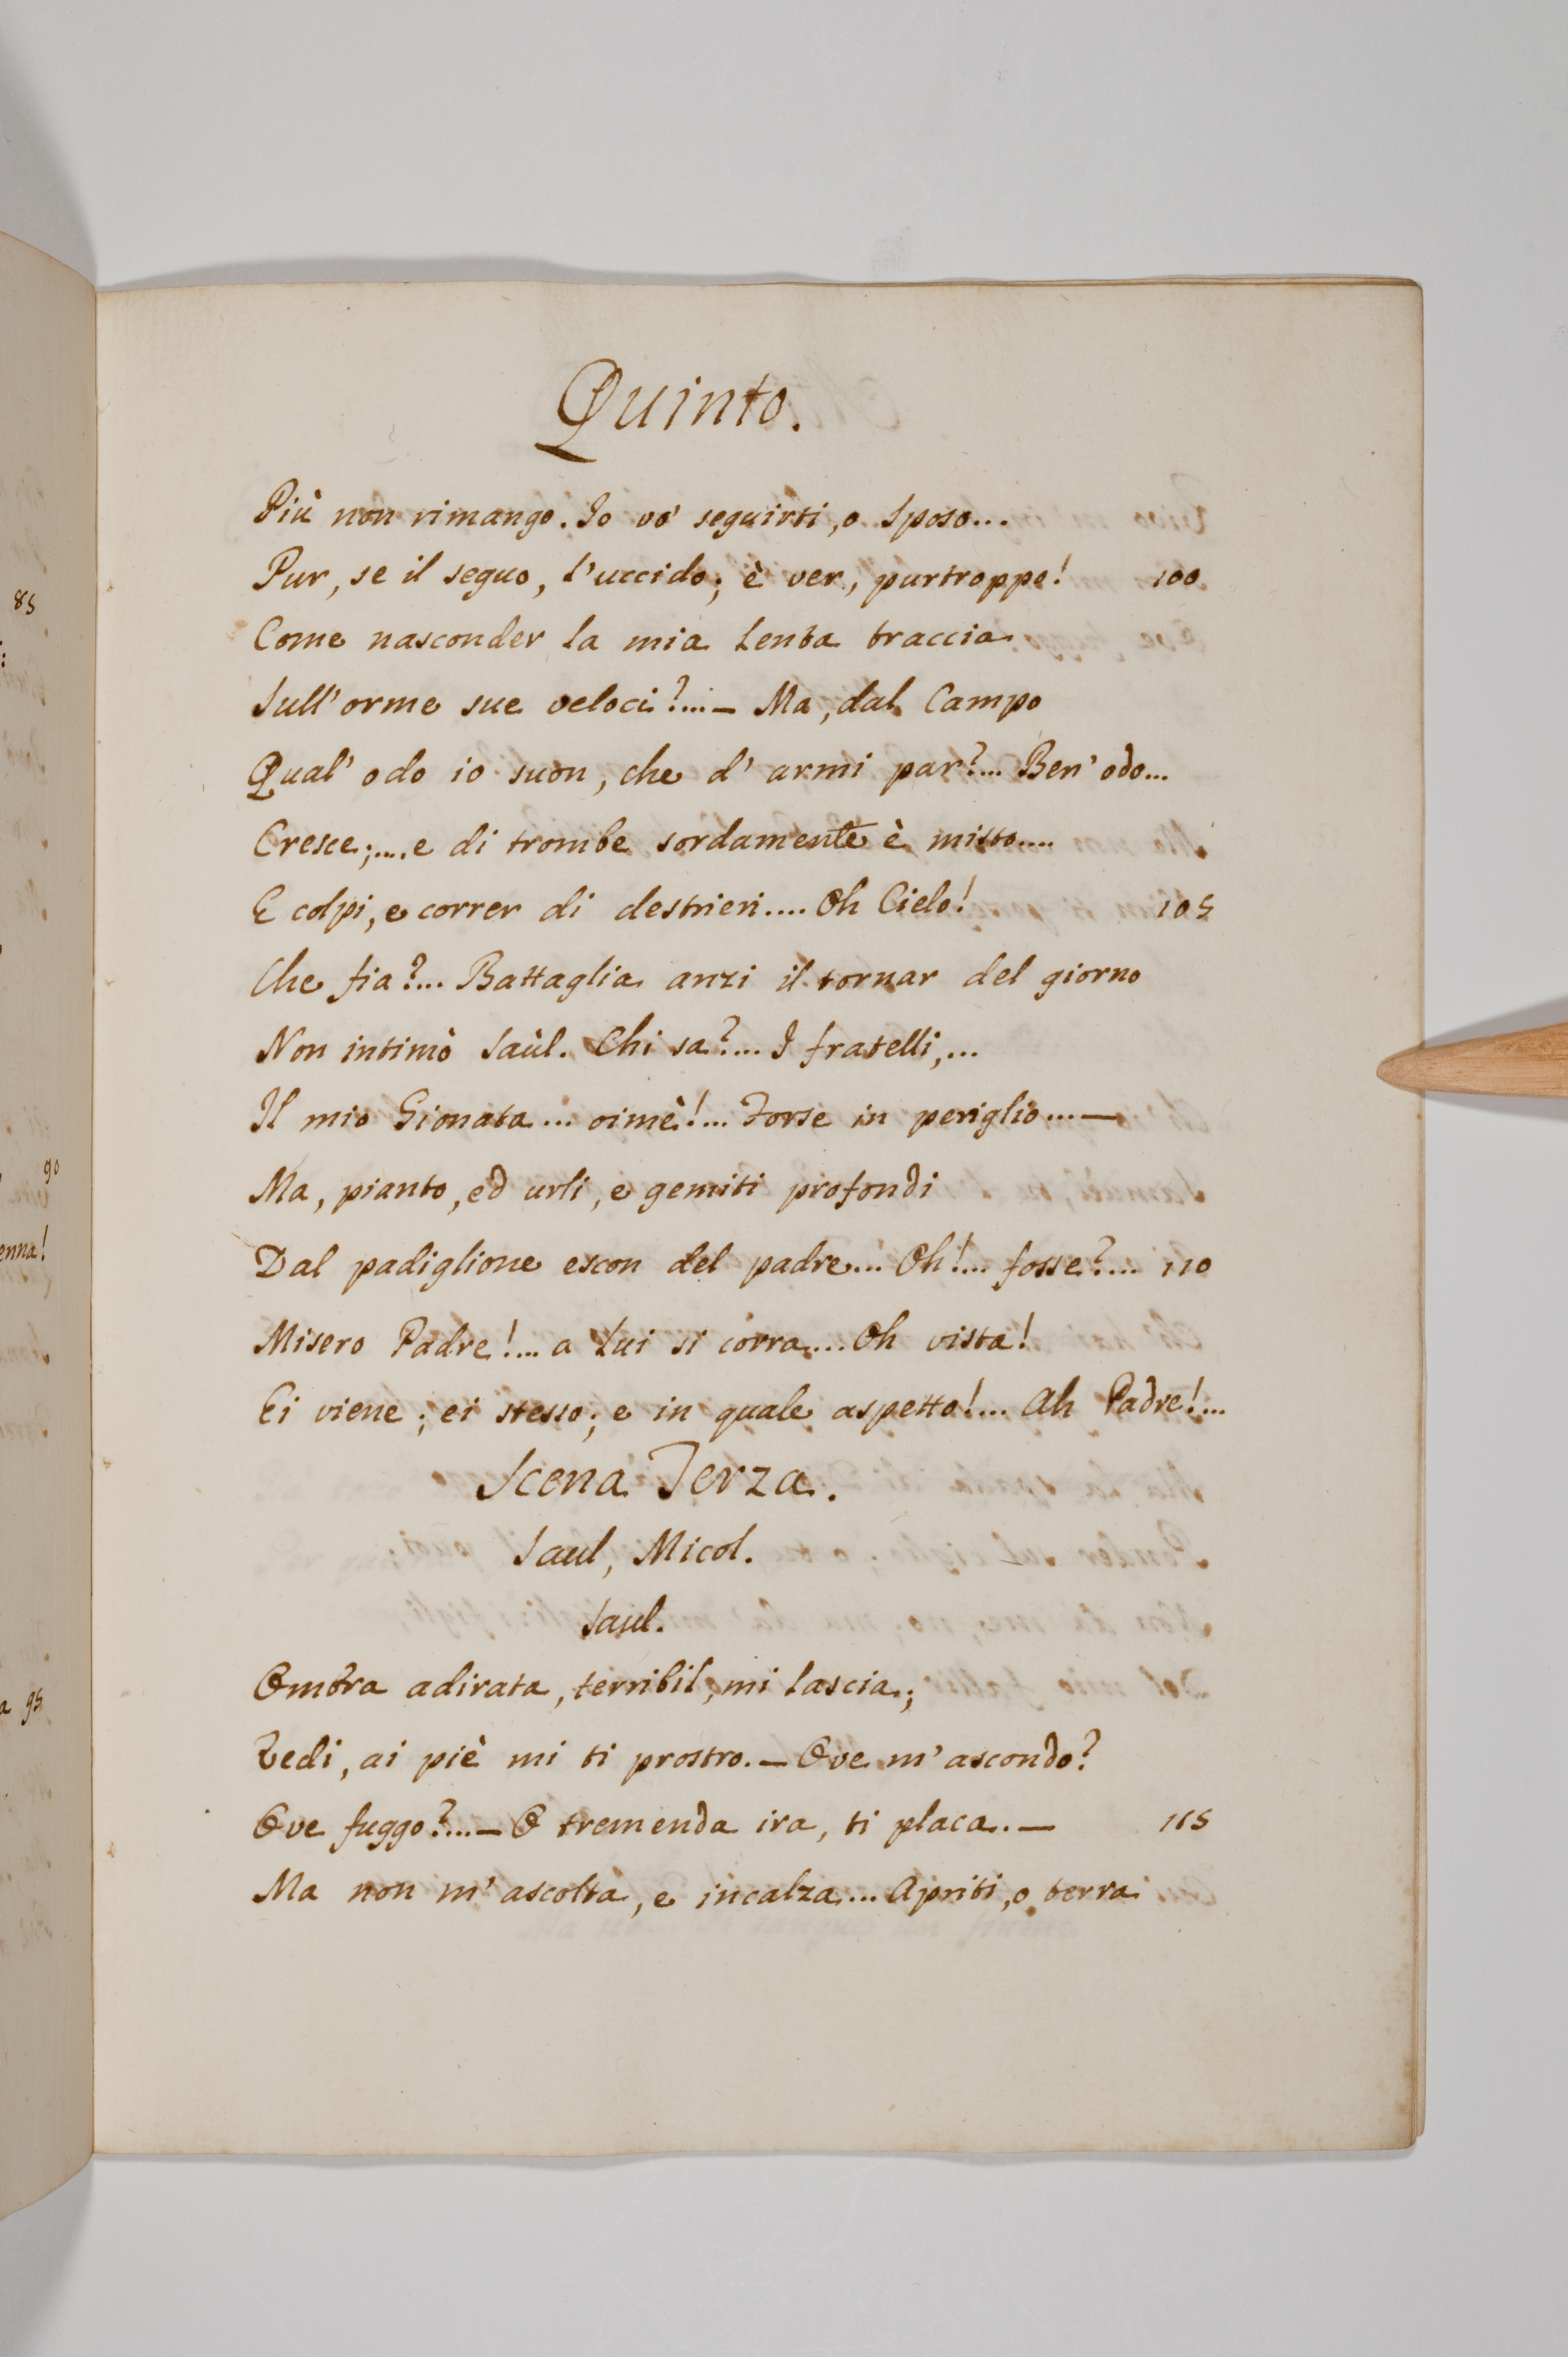 85
:
90
enna!
a 95
Quinto.
Più non rimango. Io vo' seguirti, o Sposo...
Pur, se il seguo, l'uccido; è ver, purtroppo! 100
Come nasconder la mia lenta traccia
Sull'orme sue veloci?...— Ma, dal Campo
Qual' odo io suon, che d' armi par?... Ben' odo...
Cresce;.... e di trombe sordamente è misto....
E colpi, e correr di destrieri.... Oh Cielo! 105
Che fia?... Battaglia anzi il tornar del giorno
Non intimò Saùl. Chi sa?... I fratelli,...
Il mio Gionata... oimè!... Forse in periglio...—
Ma, pianto, ed urli, e gemiti profondi
Dal padiglione escon del padre... Oh!... fosse?... 110
Misero Padre!... a Lui si corra.... Oh vista!
Ei viene; ei stesso; e in quale aspetto!... Ah Padre!...
Scena Terza.
Saul, Micol.
Saul.
Ombra adirata, terribil, mi lascia;
Vedi, ai piè mi ti prostro.— Ove m'ascondo?
Ove fuggo?...— O tremenda ira, ti placa.— 115
Ma non m'ascolta, e incalza... Apriti, o terra